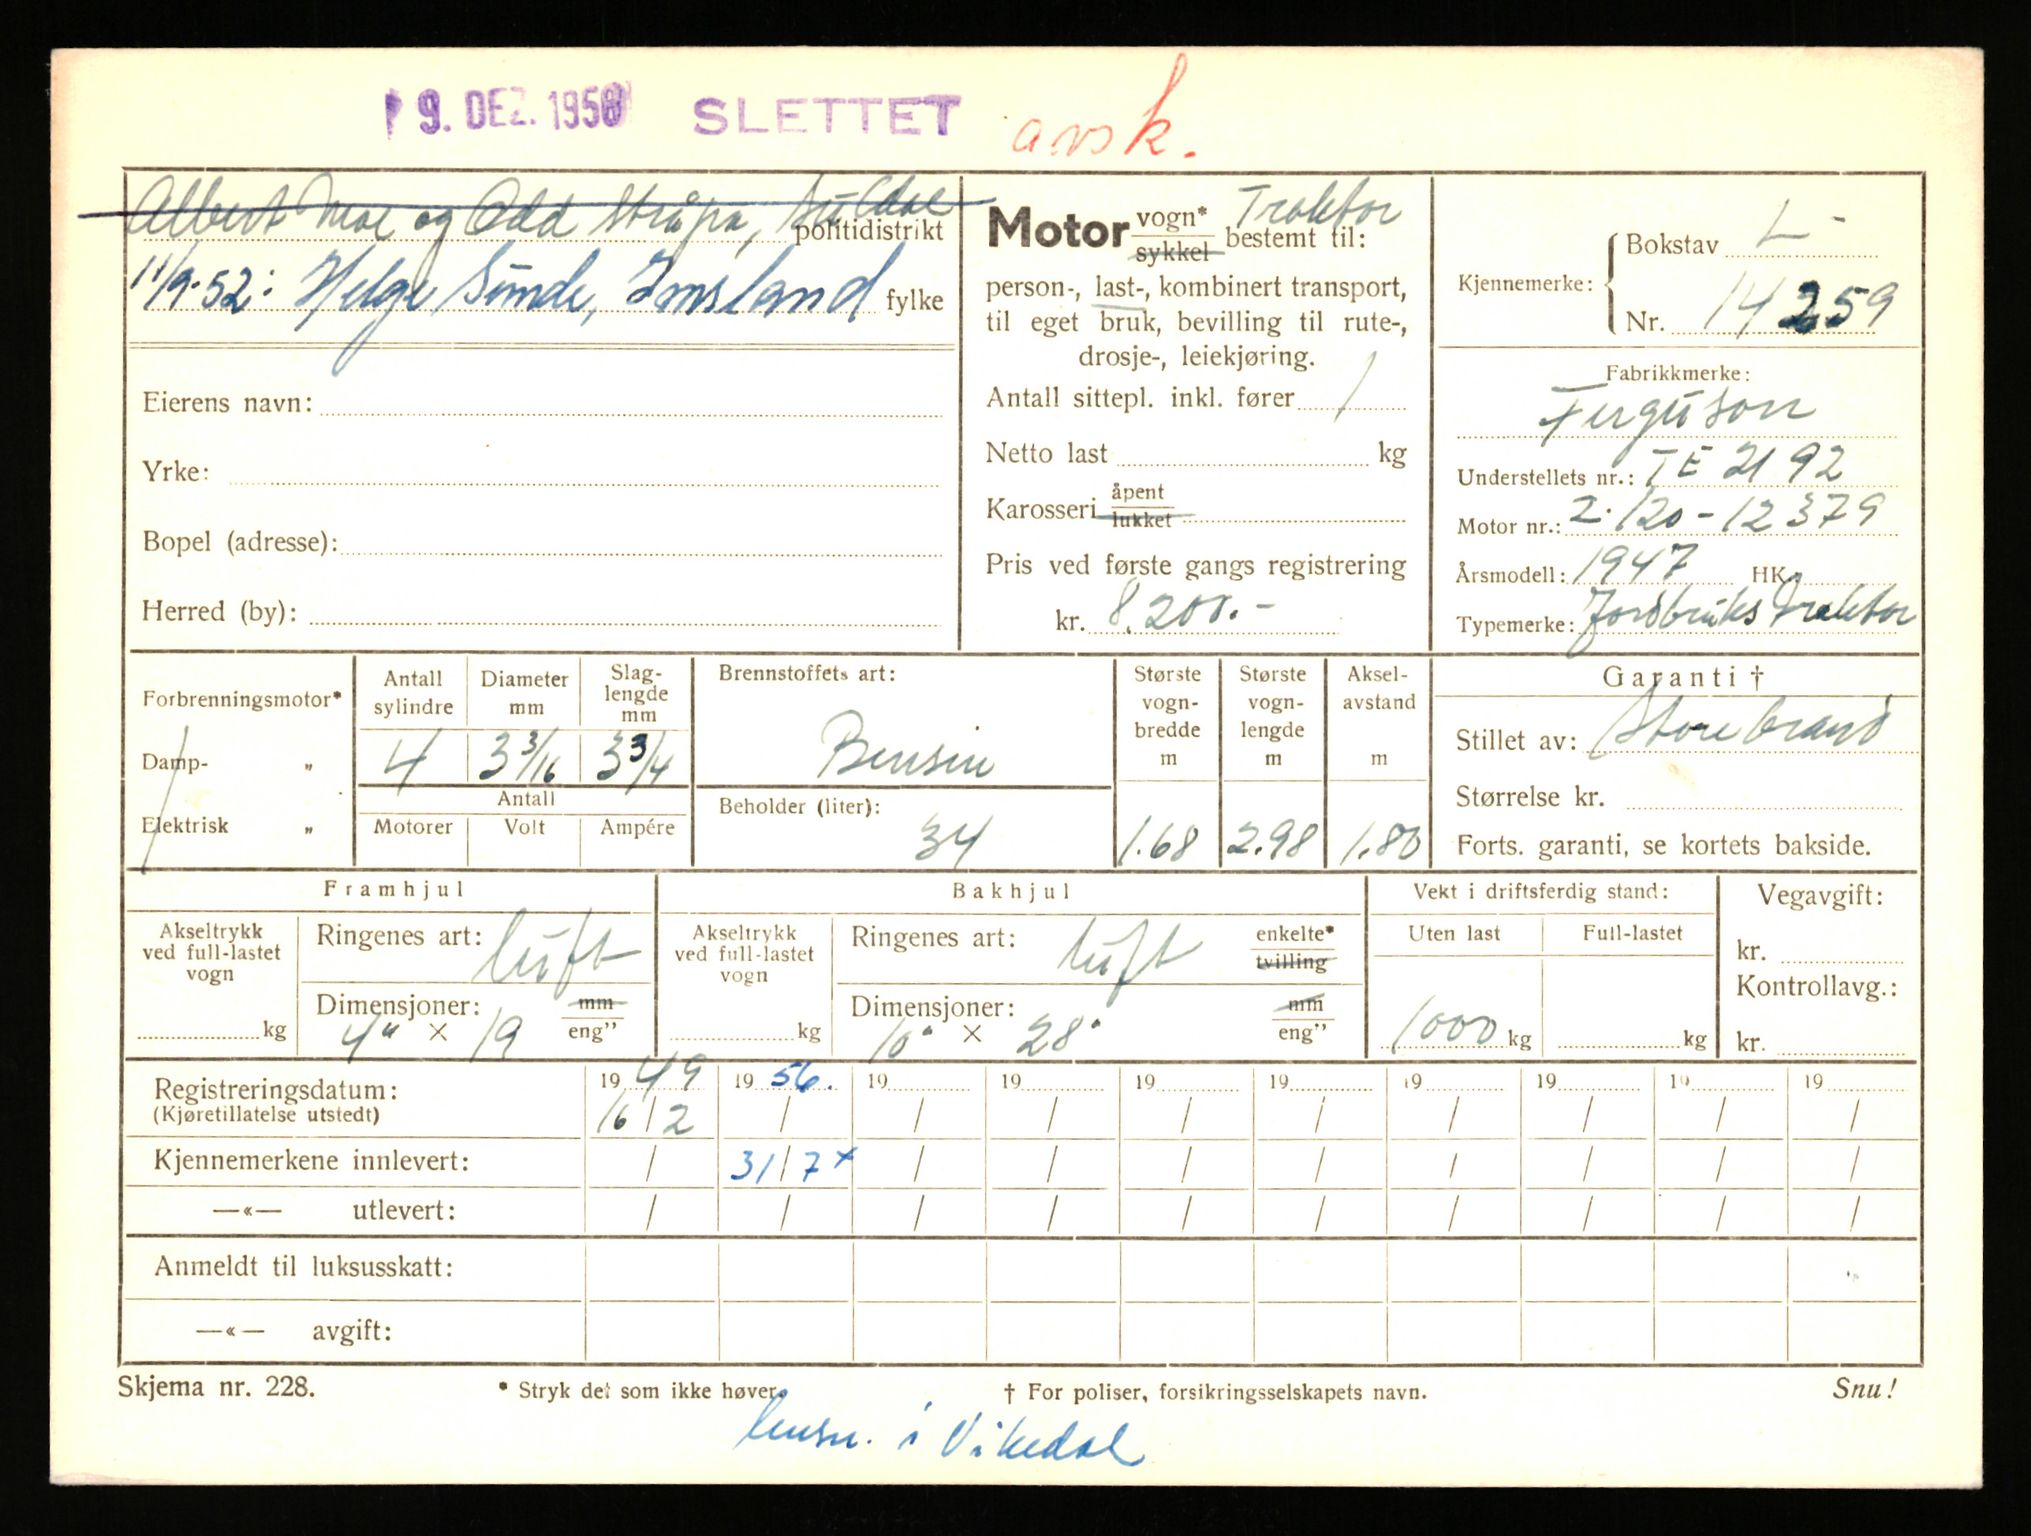 9. DEZ. 1958 SLETTET avsk.
Albert Moe og Odd Stråpa, Suldal
politidistrikt
11/9-52: Helge Sunde, Imsland
fylke
Eierens navn:
Yrke:
Bopel (adresse):
Herred (by):
Motor vogn* sykkel bestemt til: Traktor
person-, last-, kombinert transport,
til eget bruk, bevilling til rute-,
drosje-, leiekjøring.
Antall sittepl. inkl. fører 1
Netto last kg
Karosseri åpent lukket
Pris ved første gangs registrering
kr. 8.200.-
Kjennemerke: Bokstav L-
Nr. 14259
Fabrikkmerke:
Ferguson
Understellets nr.: TE 2192
Motor nr.: Z.120-12379
Årsmodell: 1947 HK
Typemerke: Jordbruks traktor
Forbrenningsmotor*
Damp- „
Elektrisk „
Antall sylindre Diameter mm Slag-lengde mm
4 3 3/16 3 3/4
Antall
Motorer Volt Ampére
Brennstoffets art:
Bensin
Beholder (liter):
34
Største vogn-bredde m Største vogn-lengde m Aksel-avstand m
1.68 2.98 1.80
Garanti †
Stillet av: Storebrand
Størrelse kr.
Forts. garanti, se kortets bakside.
Framhjul
Akseltrykk ved full-lastet vogn
kg
Ringenes art: luft
Dimensjoner: mm eng"
4" × 19
Bakhjul
Akseltrykk ved full-lastet vogn
kg
Ringenes art: luft enkelte* tvilling
Dimensjoner: mm eng"
10" × 28"
Vekt i driftsferdig stand:
Uten last Full-lastet
1000 kg kg
Vegavgift:
kr.
Kontrollavg.:
kr.
Registreringsdatum: 1949 1956. 19 19 19 19 19 19 19 19
(Kjøretillatelse utstedt) 16/2 / / / / / / / / /
Kjennemerkene innlevert: / 31/7 x / / / / / / / /
—«— utlevert: / / / / / / / / / /
Anmeldt til luksusskatt:
—«— avgift:
Skjema nr. 228. * Stryk det som ikke høver. † For poliser, forsikringsselskapets navn. Snu!
lensm. i Vikedal